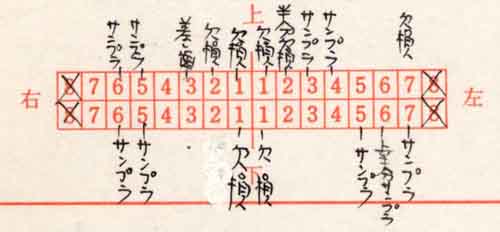 上
サンプラ
サンプラ
差し歯
欠損
欠損
欠損
半分欠損
サンプラ
サンプラ
欠損
右 8 7 6 5 4 3 2 1 1 2 3 4 5 6 7 8 左
8 7 6 5 4 3 2 1 1 2 3 4 5 6 7 8
下
サンプラ
サンプラ
欠損
欠損
サンプラ
サンプラ
サンプラ